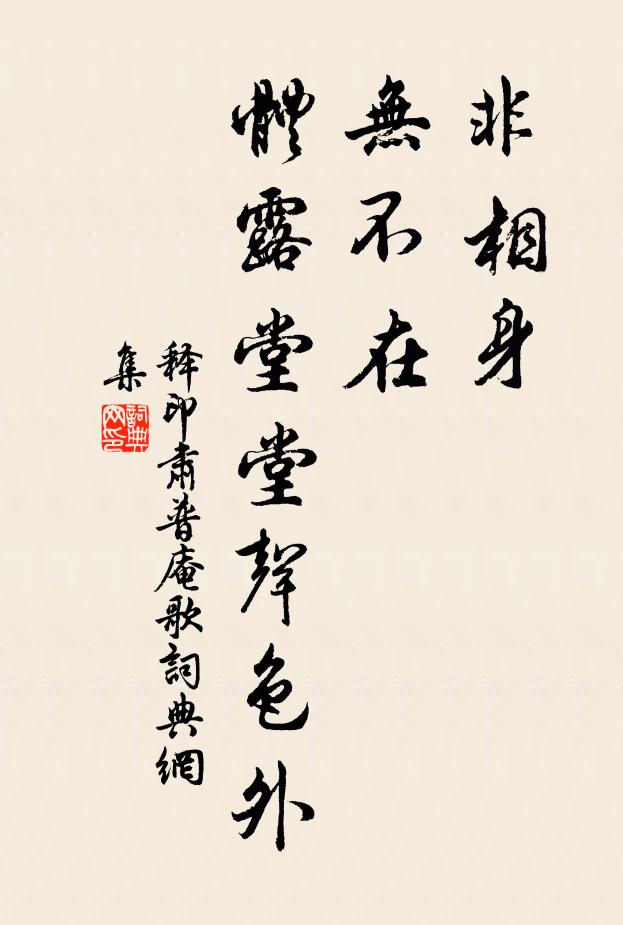 非相身
無不在
體露堂堂聲色外
釋印肅普庵歌詞典網
集
詞典网印